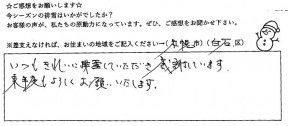 ☆ご感想をお願いします☆
今シーズンの排雪はいかがでしたか？
お客様の声が、私たちの原動力になっています。ぜひ、ご感想をお聞かせ下さい。
※差支えなければ、お住まいの地域をご記入ください→(札幌市)(白石区)
いつもきれいに排雪していただき感謝しています。
来年度もよろしくお願いいたします。